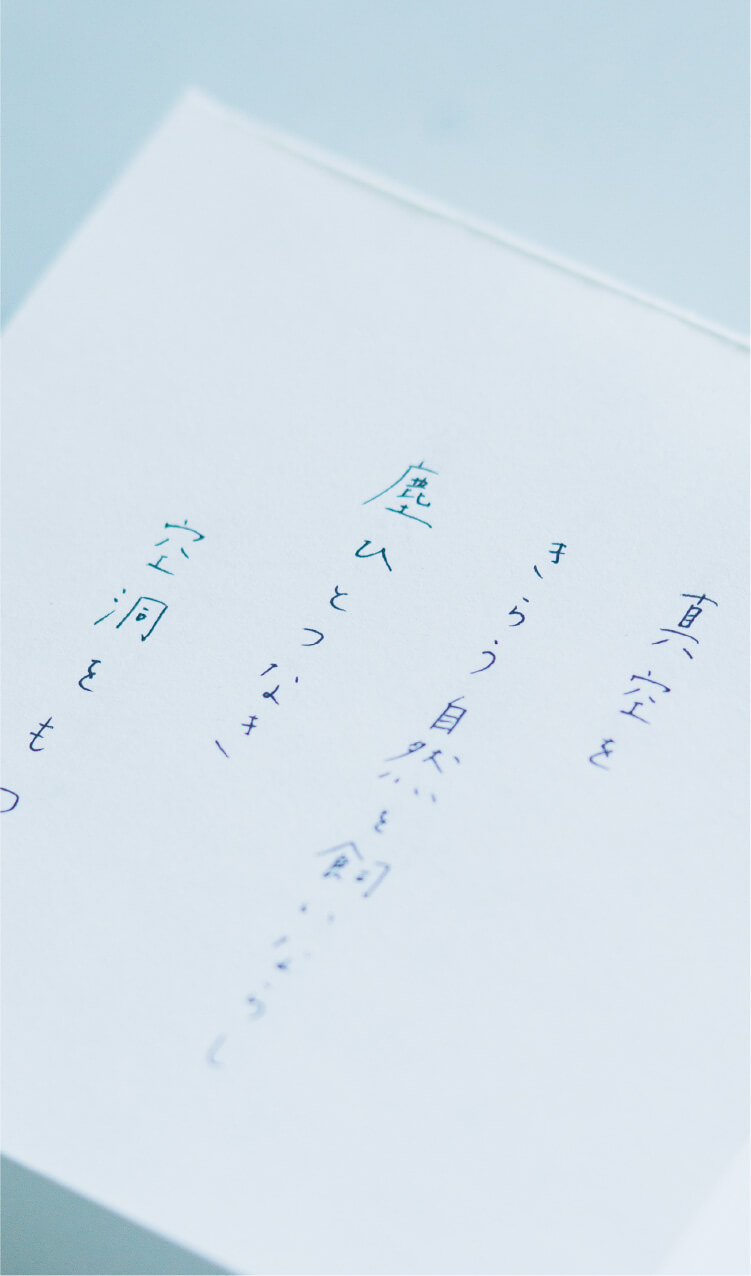 真空を
きらう自然を飼いならし
塵ひとつなき
空洞をもつ